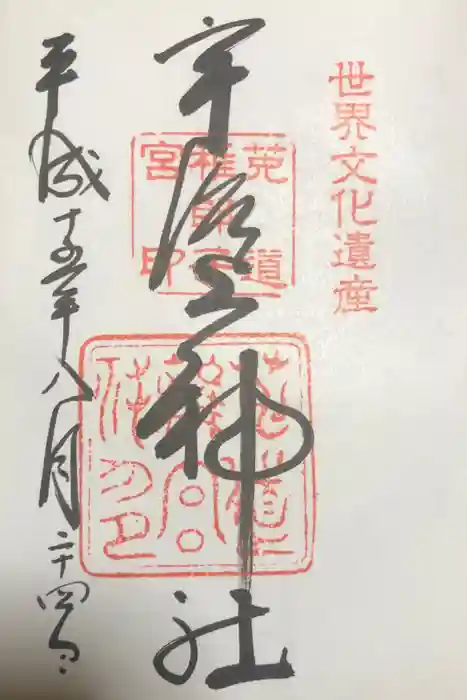 世界文化遺産
菟道
稚郎子
宮印
宇治上神社
平成十五年八月二十四日